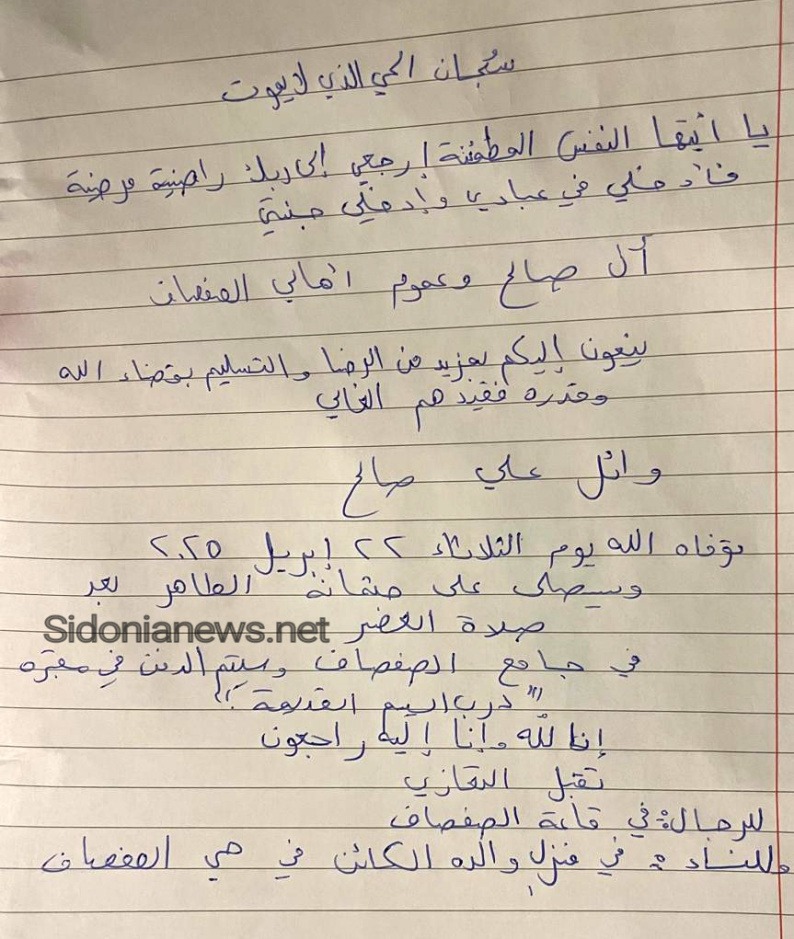 سبحان الحي الذي لا يموت
يا أيتها النفس المطمئنة إرجعي إلى ربك راضية مرضية
فأدخلي في عبادي وإدخلي جنتي
آل صالح وعموم اهالي الصفصاف
ينعون إليكم بمزيد من الرضا والتسليم بقضاء الله
وقدره فقيدهم الغالي
وائل علي صالح
توفاه الله يوم الثلاثاء ٢٢ إبريل ٢٠٢٥
وسيصلى على جثمانه الطاهر بعد
صلاة العصر
Sidonianews.net
في جامع الصفصاف وسيتم الدفن في مقبره
"درب السيم القديمة"
إنا لله وإنا إليه راجعون
تقبل التعازي
للرجال: في قاعة الصفصاف
وللنساء: في منزل والده الكائن في حي الصفصاف